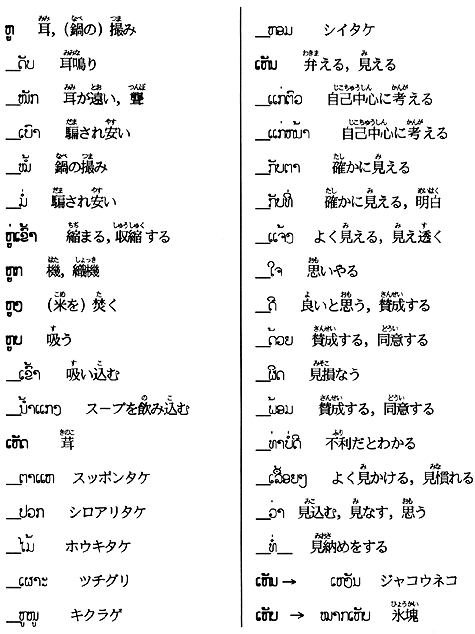 ຫູ 耳, (鍋の) 撮み
__ດັບ 耳鳴り
__ໜັກ 耳が遠い, 聾
__ເບົາ 騙され安い
__ໝໍ້ 鍋の撮み
__ມໍ່ 騙され安い
ຫູ່ເຂົ້າ 縮まる, 収縮する
ຫູກ 機, 織機
ຫູງ (米を) 焚く
ຫູບ 吸う
__ເຂົ້າ 吸い込む
__ນ້ຳແກງ スープを飲み込む
ເຫັດ 茸
__ຕາແຫ スッポンタケ
__ປວກ シロアリタケ
__ໄມ້ ホウキタケ
__ເຜາະ ツチグリ
__ຫູໜູ キクラゲ
__ຫອມ シイタケ
ເຫັນ 弁える, 見える
__ແກ່ຕົວ 自己中心に考える
__ແກ່ໜ້າ 自己中心に考える
__ກັບຕາ 確かに見える
__ກັບທີ່ 確かに見える, 明白
__ແຈ້ງ よく見える, 見え透く
__ໃຈ 思いやる
__ດີ 良いと思う, 賛成する
__ດ້ວຍ 賛成する, 同意する
__ຜິດ 見損なう
__ພ້ອມ 賛成する, 同意する
__ທ່າບໍ່ດີ 不利だとわかる
__ເລື້ອຍໆ よく見かける, 見慣れる
__ວ່າ 見込む, 見なす, 思う
__ທໍ່__ 見納めをする
ເຫັນ → ເຫງັນ ジャコウネコ
ເຫັບ → ໝາກເຫັບ 氷塊